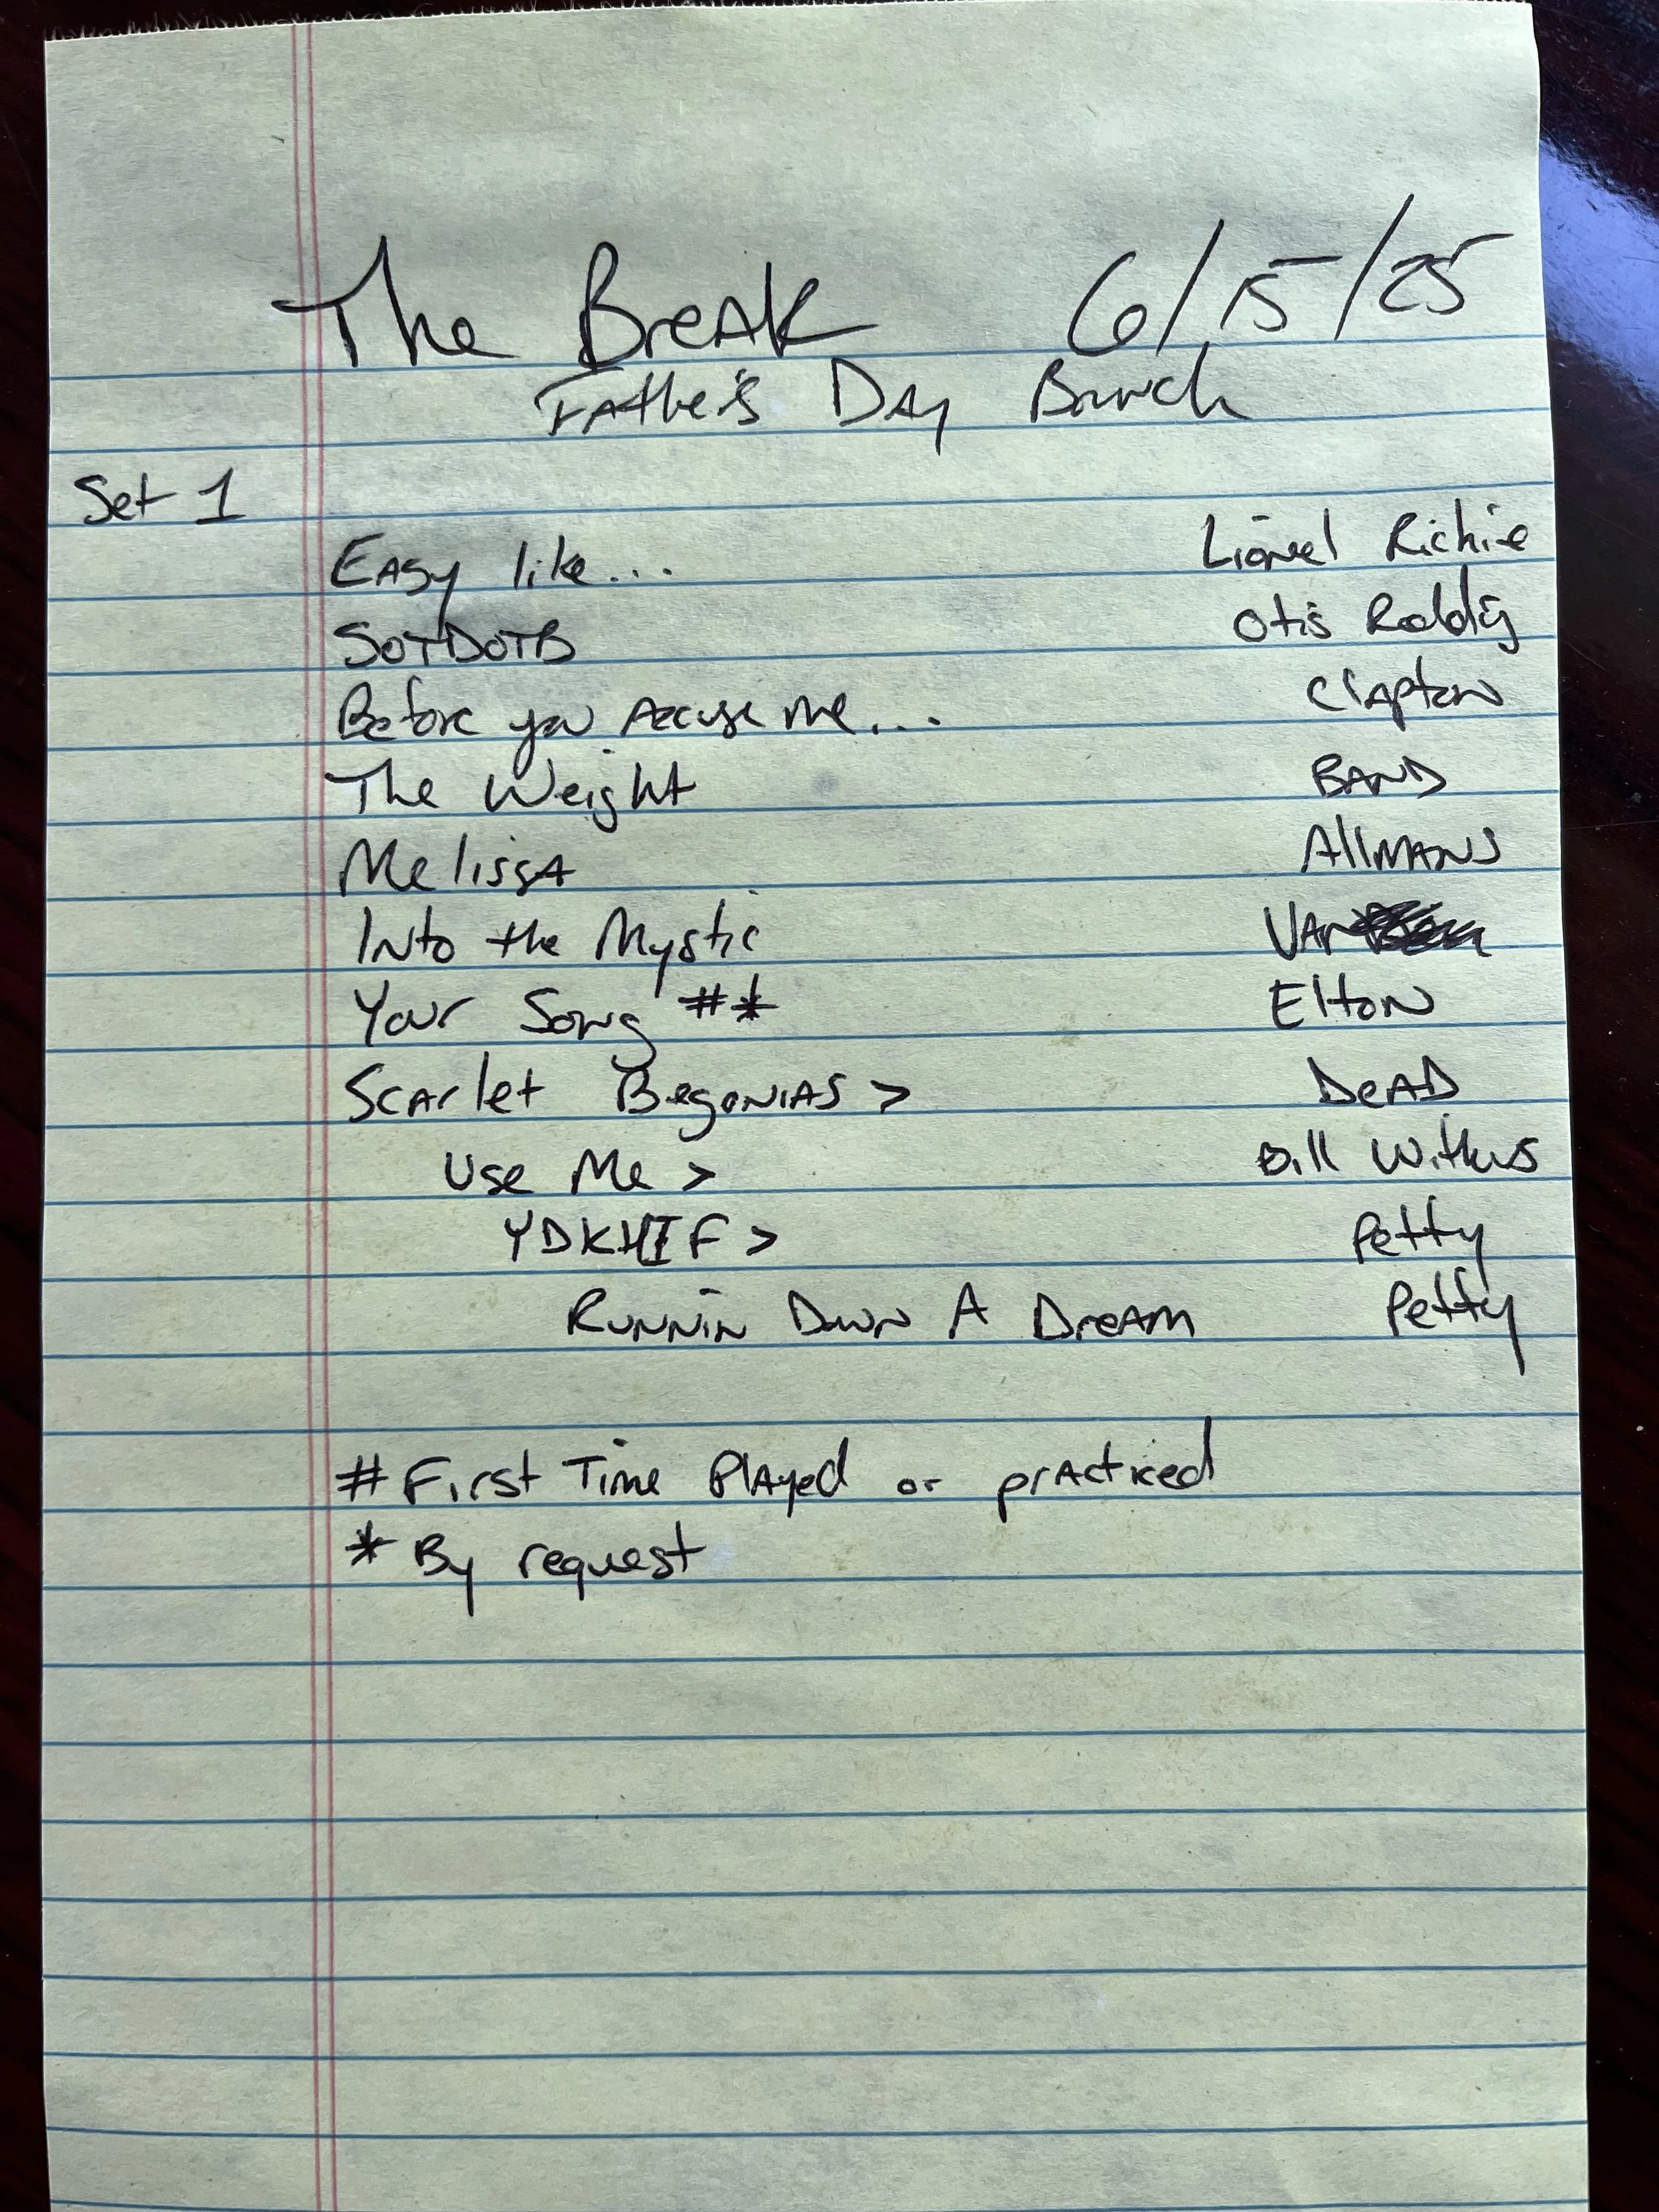 The Break 6/15/25
Father's Day Brunch
Set 1
Easy like... Lionel Richie
SOTDOTB Otis Redding
Before you Accuse me... Clapton
The Weight BAND
Melissa Allmans
Into the Mystic Van
Your Song #* Elton
Scarlet Begonias > Dead
Use Me > Bill Withers
YDKHIF > Petty
Runnin Down A Dream Petty
# First Time Played or practiced
* By request